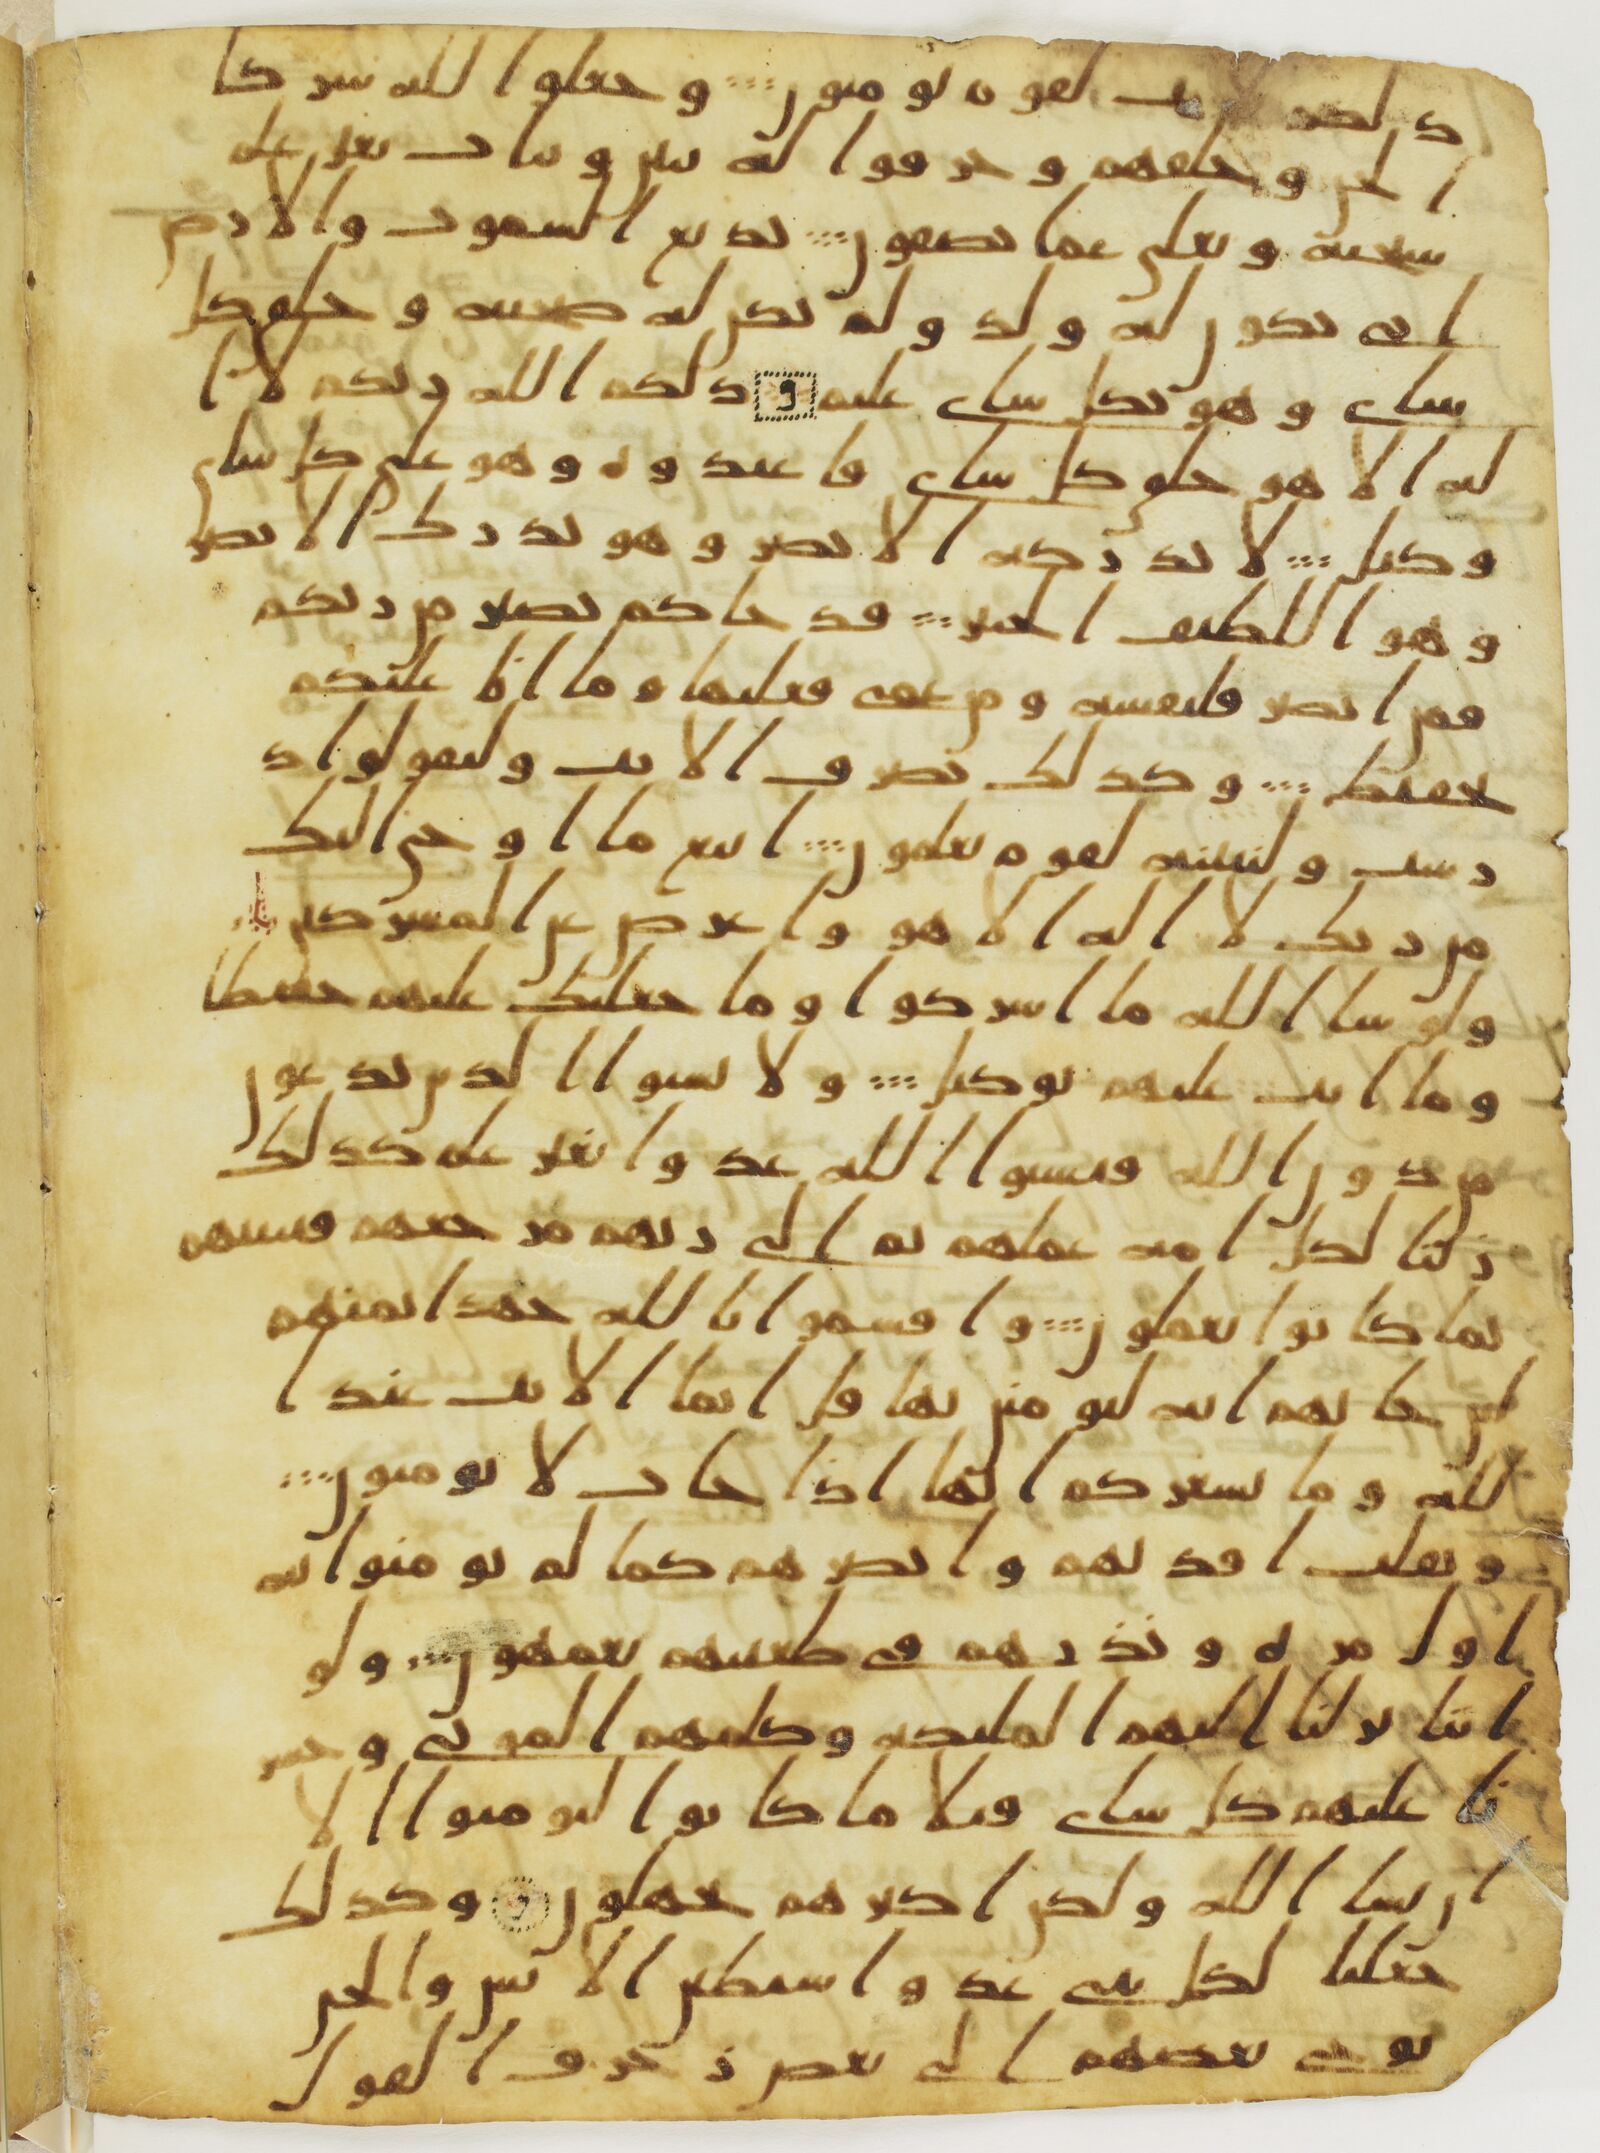 ذلكم لايت لقوم يومنون وجعلوا لله شركا
الجن وخلقهم وخرقوا له بنين وبنات بغير علم
سبحنه وتعلى عما يصفون بديع السموت والارض
انى يكون له ولد ولم تكن له صحبه وخلق كل
شاى وهو بكل شاى عليم ذلكم الله ربكم لا ا
له الا هو خلق كل شاى فاعبدوه وهو على كل شاى
وكيل لا تدركه الابصر وهو يدرك الابصر
وهو اللطيف الخبير قد جاكم بصير من ربكم
فمن ابصر فلنفسه ومن عمى فعليها وما انا عليكم
بحفيظ وكذلك نصرف الايت وليقولوا د
رست ولنبينه لقوم يعلمون اتبع ما اوحى اليك
من ربك لا اله الا هو واعرض عن المشركين
ولو شا الله ما اشركوا وما جعلنك عليهم حفيظا
وما انت عليهم بوكيل ولا تسبوا الذين يدعون
من دون الله فيسبوا الله عدوا بغير علم كذلك
زينا لكل امه عملهم ثم الى ربهم مرجعهم فينبيهم
بما كانوا يعملون واقسموا بالله جهد ايمنهم
لين جاتهم ايه ليومنن بها قل انما الايت عند ا
لله وما يشعركم انها اذا جات لا يومنون
ونقلب افدتهم وابصرهم كما لم يومنوا به
اول مره ونذرهم فى طغينهم يعمهون ولو
اننا نزلنا اليهم المليكه وكلمهم الموتى وحشر
نا عليهم كل شاى قبلا ما كانوا ليومنوا الا
ان يشا الله ولكن اكثرهم يجهلون وكذلك
جعلنا لكل نبى عدوا شيطين الانس والجن
يوحى بعضهم الى بعض زخرف القول